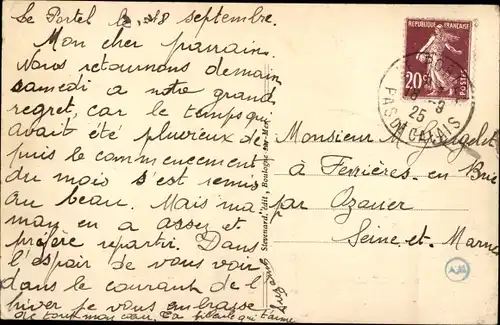 Le Portel le 18 septembre.
Mon cher parrain.
Nous retournons demain
samedi a notre grand
regret, car le temps qui
avait été pluvieux de-
puis le commencement
du mois s'est remis
au beau. Mais ma
may en a assez et
préfère repartir. Dans
l'espoir de vous voir
dans le courant de l'
hiver je vous embrasse
de tout mon cœur. Ta filleule qui t'aime
Stevenard, édit., Boulogne-sur-Mer
REPUBLIQUE FRANÇAISE
20c
POSTES
18-9
25
PAS DE CALAIS
Monsieur
à Ferrières en Brie
par Ozouer
Seine et Marne